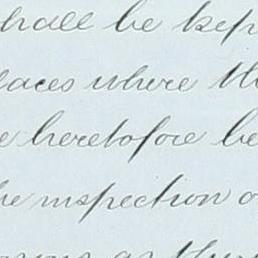 shall be kep
laces where th
e heretofore be
he inspection o